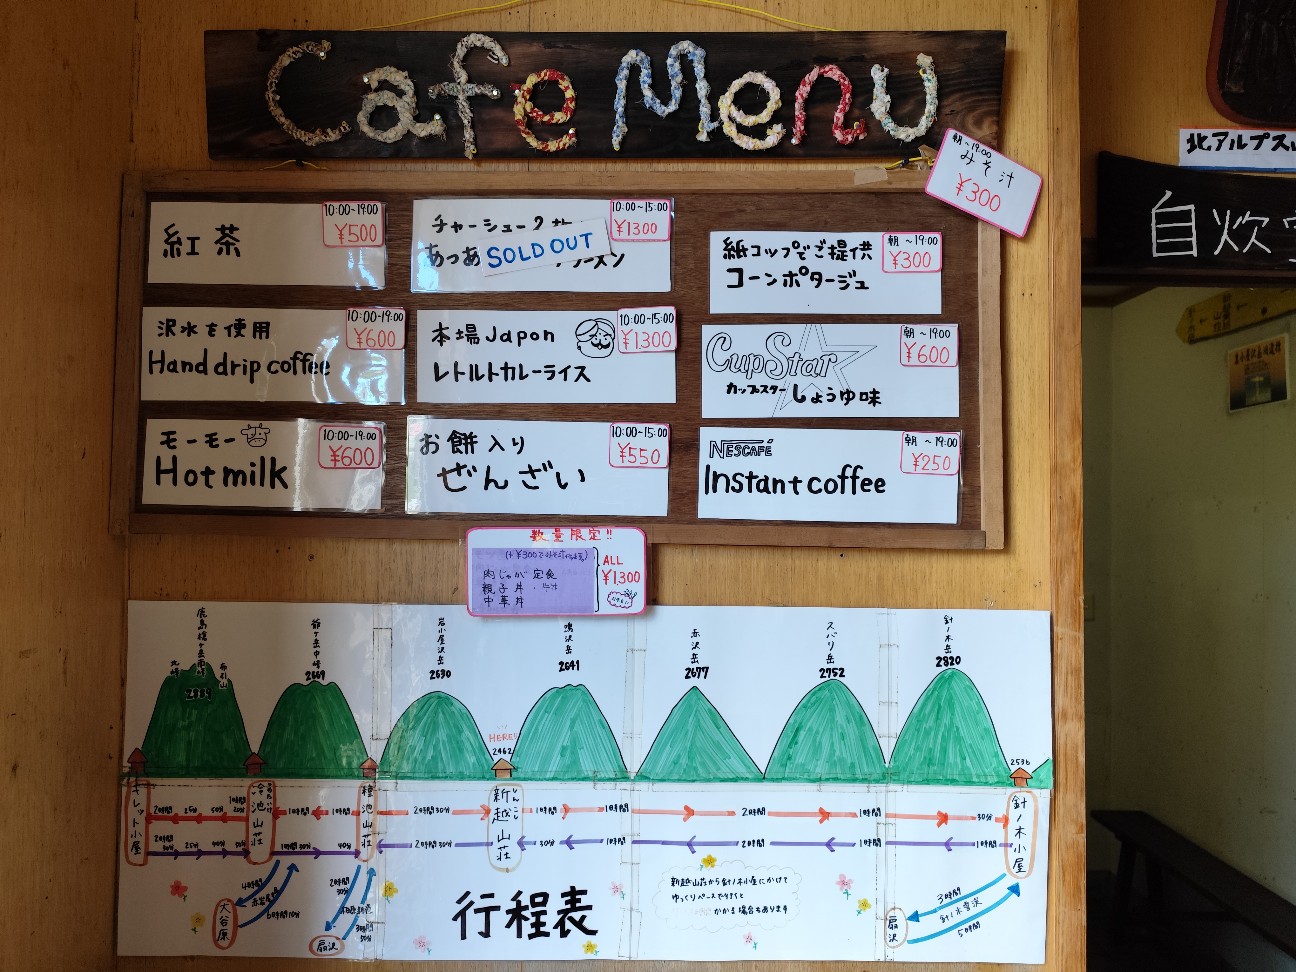 Cafe Menu
朝~19:00
みそ汁
¥300
北アルプス
自炊
紅茶
10:00~19:00
¥500
チャーシュー2
あっあ
SOLD OUT
10:00~15:00
¥1300
紙コップでご提供
コーンポタージュ
朝~19:00
¥300
沢水を使用
Hand drip coffee
10:00~19:00
¥600
本場Japon
レトルトカレーライス
10:00~15:00
¥1300
CupStar
カップスター しょうゆ味
朝~19:00
¥600
モーモー
Hot milk
10:00~19:00
¥600
お餅入り
ぜんざい
10:00~15:00
¥550
NESCAFÉ
Instant coffee
朝~19:00
¥250
数量限定!!
肉じゃが定食
親子丼・牛丼
中華丼
ALL
¥1300
鹿島槍ヶ岳南峰
北峰
布引山
2889
爺ヶ岳中峰
2669
岩小屋沢岳
2630
鳴沢岳
2641
赤沢岳
2677
スバリ岳
2752
針ノ木岳
2820
HERE!!
2462
2536
キレット小屋
冷池山荘
種池山荘
新越山荘
しんこし
針ノ木小屋
2時間30分
1時間
1時間
2時間
1時間
30分
2時間30分
30分
1時間
2時間
1時間
1時間
大谷原
扇沢
行程表
新越山荘から針ノ木小屋にかけて
ゆっくりペースで行くと
かかる場合もあります
扇沢
3時間
針ノ木雪渓
5時間